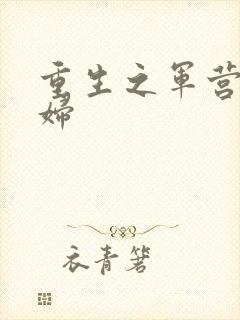 重生之军营
妇
衣青箬